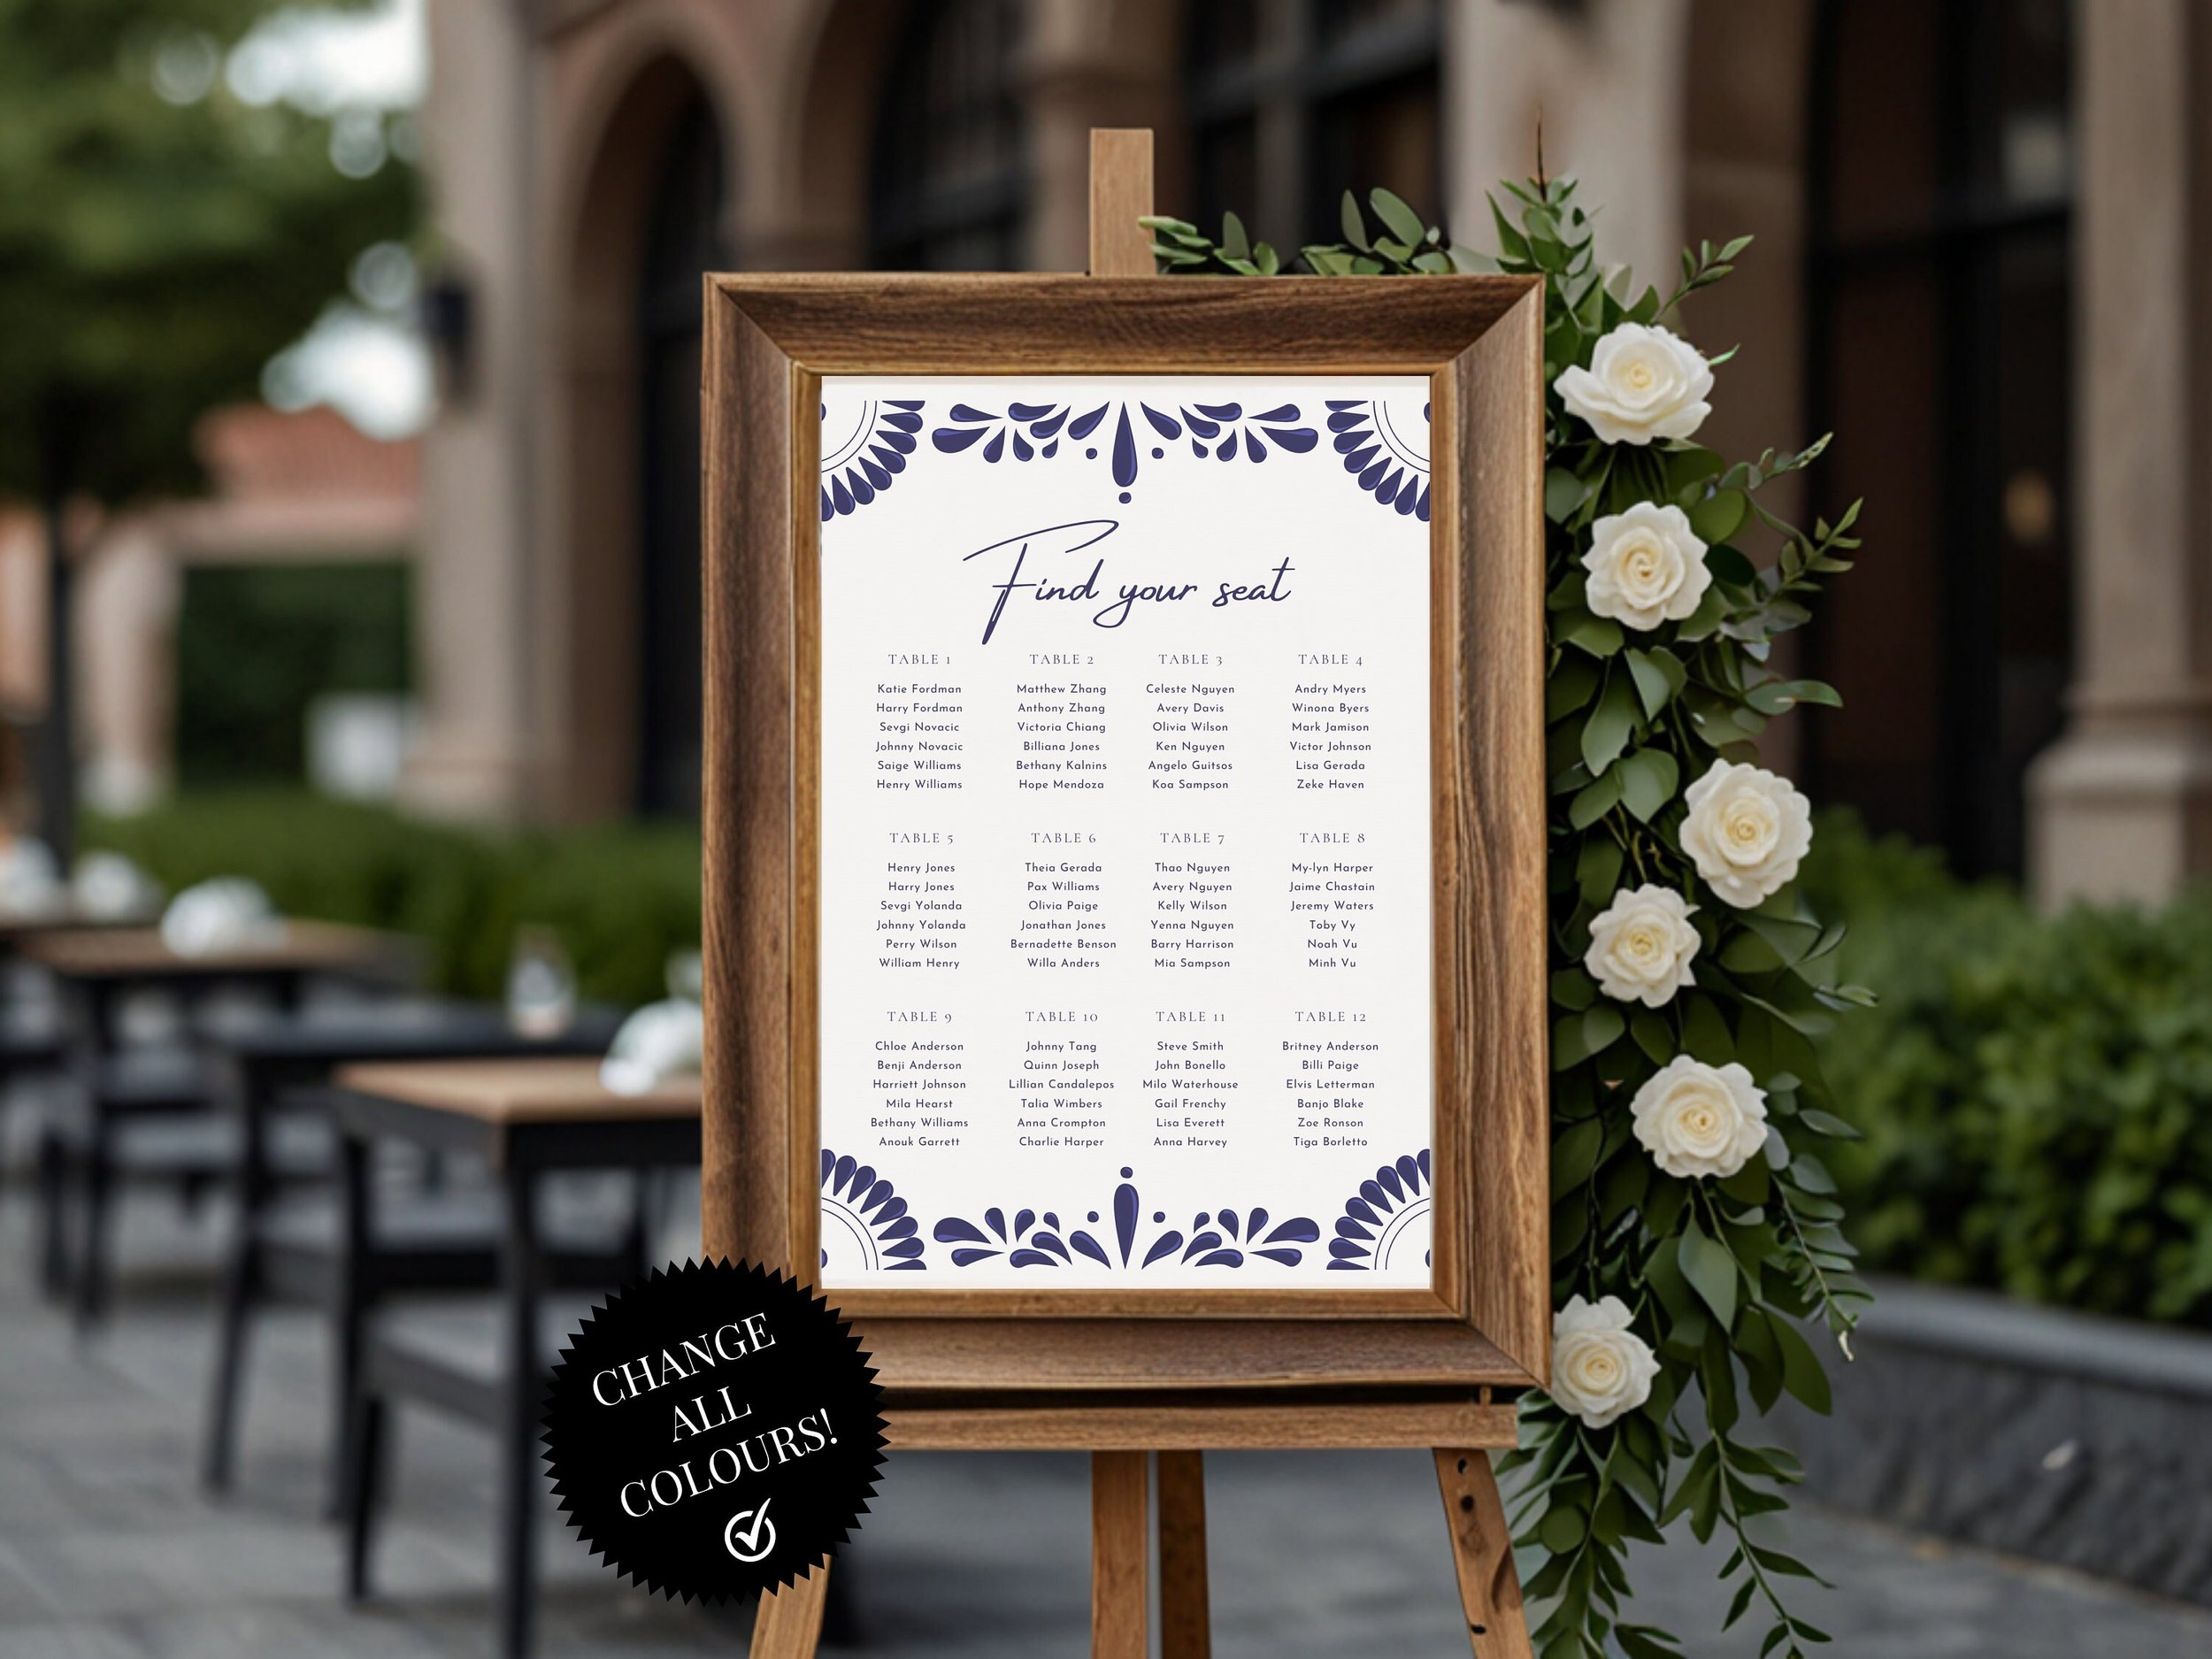 Find your seat
TABLE 1
Katie Fordman
Harry Fordman
Sevgi Novacic
Johnny Novacic
Saige Williams
Henry Williams
TABLE 2
Matthew Zhang
Anthony Zhang
Victoria Chiang
Billiana Jones
Bethany Kalnins
Hope Mendoza
TABLE 3
Celeste Nguyen
Avery Davis
Olivia Wilson
Ken Nguyen
Angelo Guitsos
Koa Sampson
TABLE 4
Andry Myers
Winona Byers
Mark Jamison
Victor Johnson
Lisa Gerada
Zeke Haven
TABLE 5
Henry Jones
Harry Jones
Sevgi Yolanda
Johnny Yolanda
Perry Wilson
William Henry
TABLE 6
Theia Gerada
Pax Williams
Olivia Paige
Jonathan Jones
Bernadette Benson
Willa Anders
TABLE 7
Thao Nguyen
Avery Nguyen
Kelly Wilson
Yenna Nguyen
Barry Harrison
Mia Sampson
TABLE 8
My-lyn Harper
Jaime Chastain
Jeremy Waters
Toby Vy
Noah Vu
Minh Vu
TABLE 9
Chloe Anderson
Benji Anderson
Harriett Johnson
Mila Hearst
Bethany Williams
Anouk Garrett
TABLE 10
Johnny Tang
Quinn Joseph
Lillian Candalepos
Talia Wimbers
Anna Crompton
Charlie Harper
TABLE 11
Steve Smith
John Bonello
Milo Waterhouse
Gail Frenchy
Lisa Everett
Anna Harvey
TABLE 12
Britney Anderson
Billi Paige
Elvis Letterman
Banjo Blake
Zoe Ronson
Tiga Borletto
CHANGE
ALL
COLOURS!